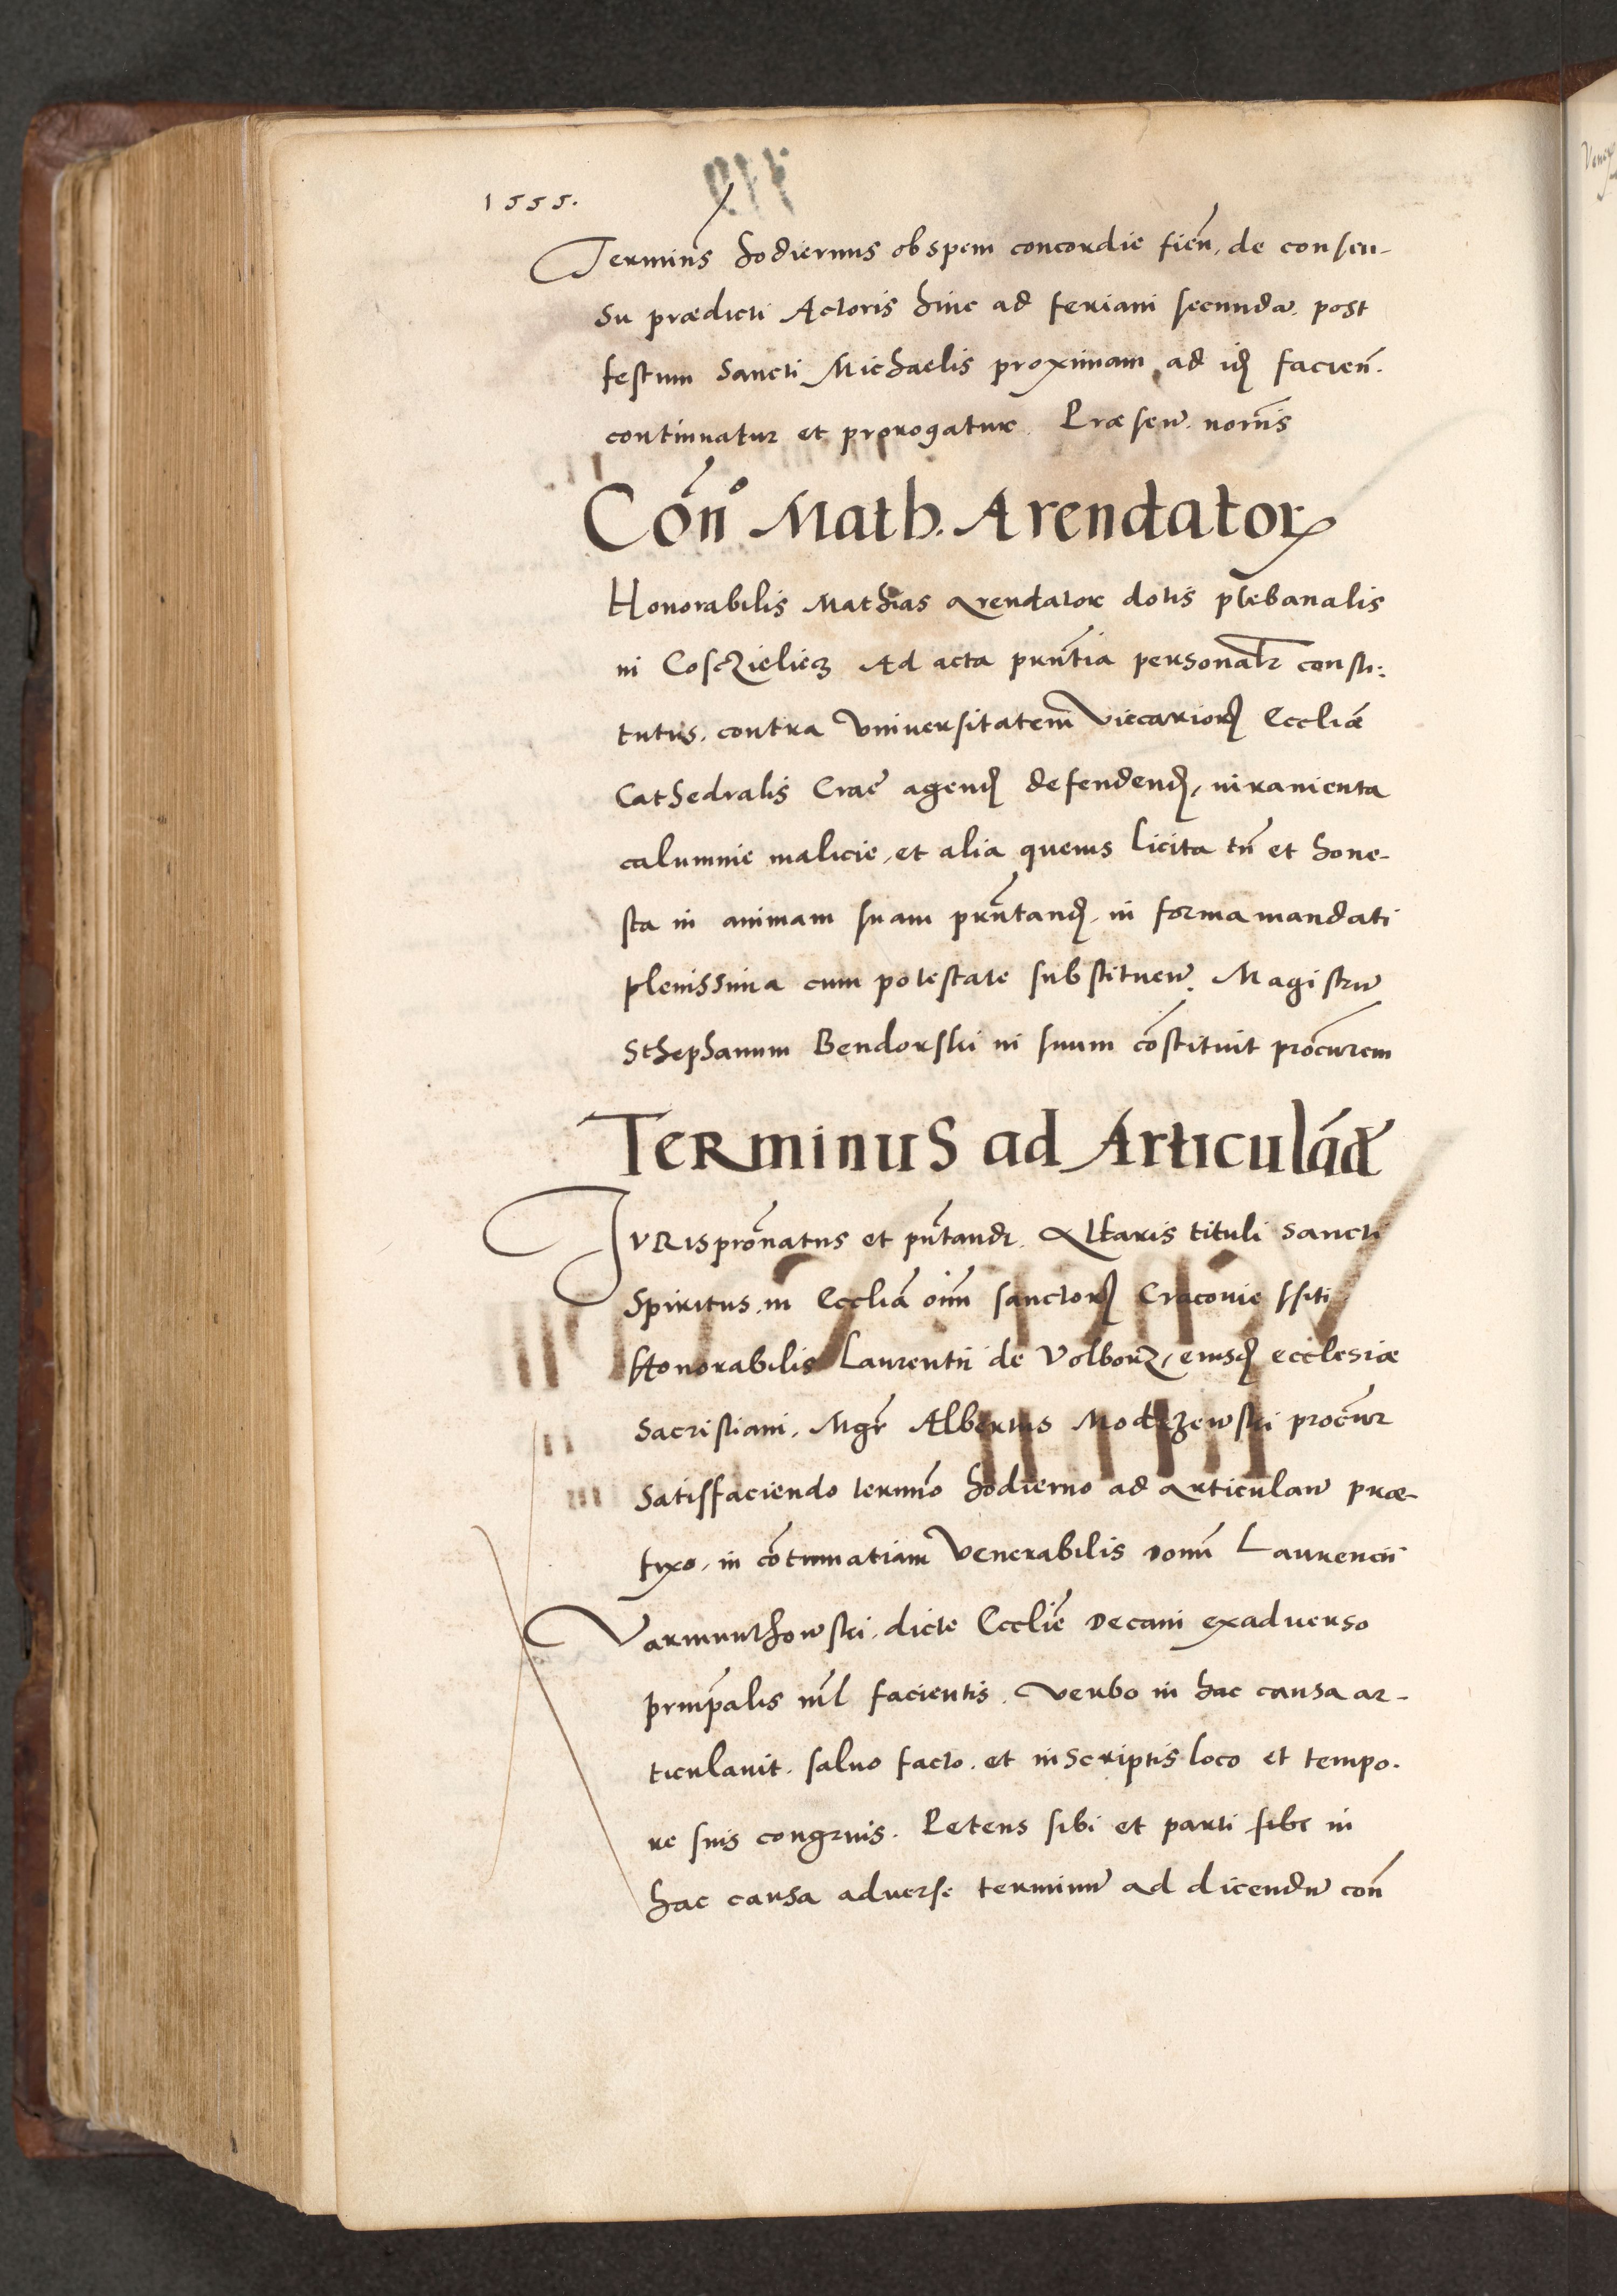 1555.
Terminus hodiernus ob spem concordie fień. de consen-
su prædicti Actoris hinc ad feriam secundã. post
festum Sancti Michaelis proximam ad idꝫ facień.
continuatur et prorogatur. Præsenꝰ. nomĩs
Cõnᵒ Math. Arendatoꝝ
Honorabilis Mathias Arendator dotis plebanalis
in Cosczielicz Ad acta prñtia personalr̃ consti:
tutus. contra Vniuersitatem Viccarioꝝ Eccliæ̃
Cathedralis Crac̃ agenđ defendenđ, iuramenta
calumnie malicie, et alia queuis licita tñ et hone-
sta in animam suam prñtanđ. in forma mandati
plenissima cum potestate substituenď. Magistrũ
Sthephanum Bendorski in suum cõstituit procurem̃
Terminus ad Articulãđ
Jurispron̄atus et pñtandi. Altaris tituli Sancti
Spiritus. in Ecclia õim̃ sanctoꝝ Cracouie siti
Honorabilis Laurentii de Volborz, eiusđ ecclesiæ
Sacristiani. Mgr̃ Albertus Modrzewski procur̃
Satisfaciendo termĩo hodierno ad articulanď præ-
fixo, in cõtumatiam Venerabilis Domĩ Laurencii
Varmunthowski. dicte Ecclie̅ Decani ex aduerso
prin̄palis nil̃ facientis. Verbo in hac causa ar-
ticulauit. saluo facto. et in scriptis loco et tempo.
re suis congruis. Petens sibi et parti sibi in
hac causa aduerse terminũ ad dicendũ coñ